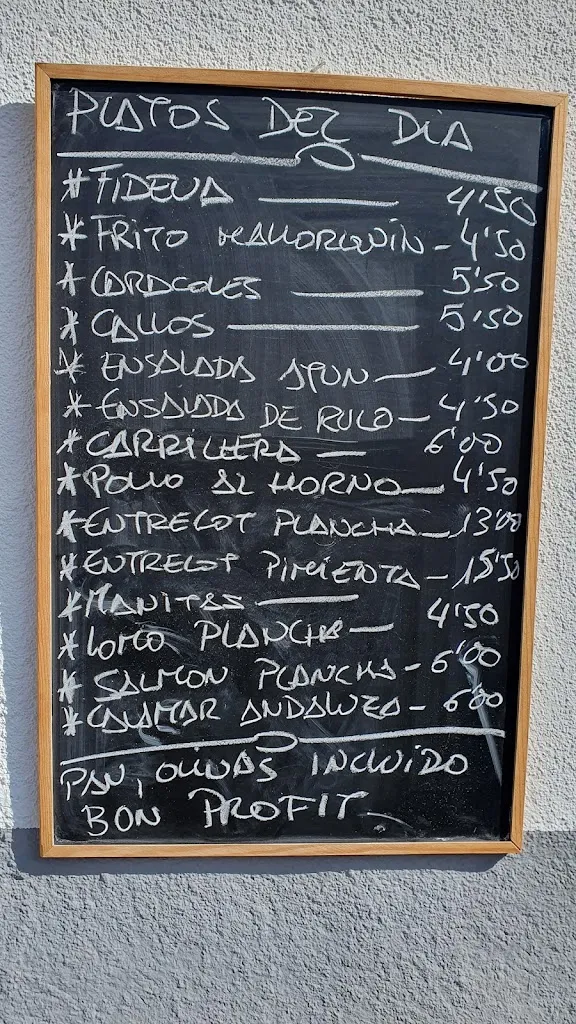 PLATOS DEL DÍA
* FIDEUA — 4'50
* FRITO MALLORQUÍN - 4'50
* CARACOLES — 5'50
* CALLOS — 5'50
* ENSALADA ATUN — 4'00
* ENSALADA DE RULO — 4'50
* CARRILLERA — 6'00
* POLLO AL HORNO — 4'50
* ENTRECOT PLANCHA — 13'00
* ENTRECOT PIMIENTA — 15'50
* MANITAS — 4'50
* LOMO PLANCHA — 6'00
* SALMON PLANCHA - 6'00
* CALAMAR ANDALUZA - 6'00
PAN, OLIVAS INCLUIDO
BON PROFIT.